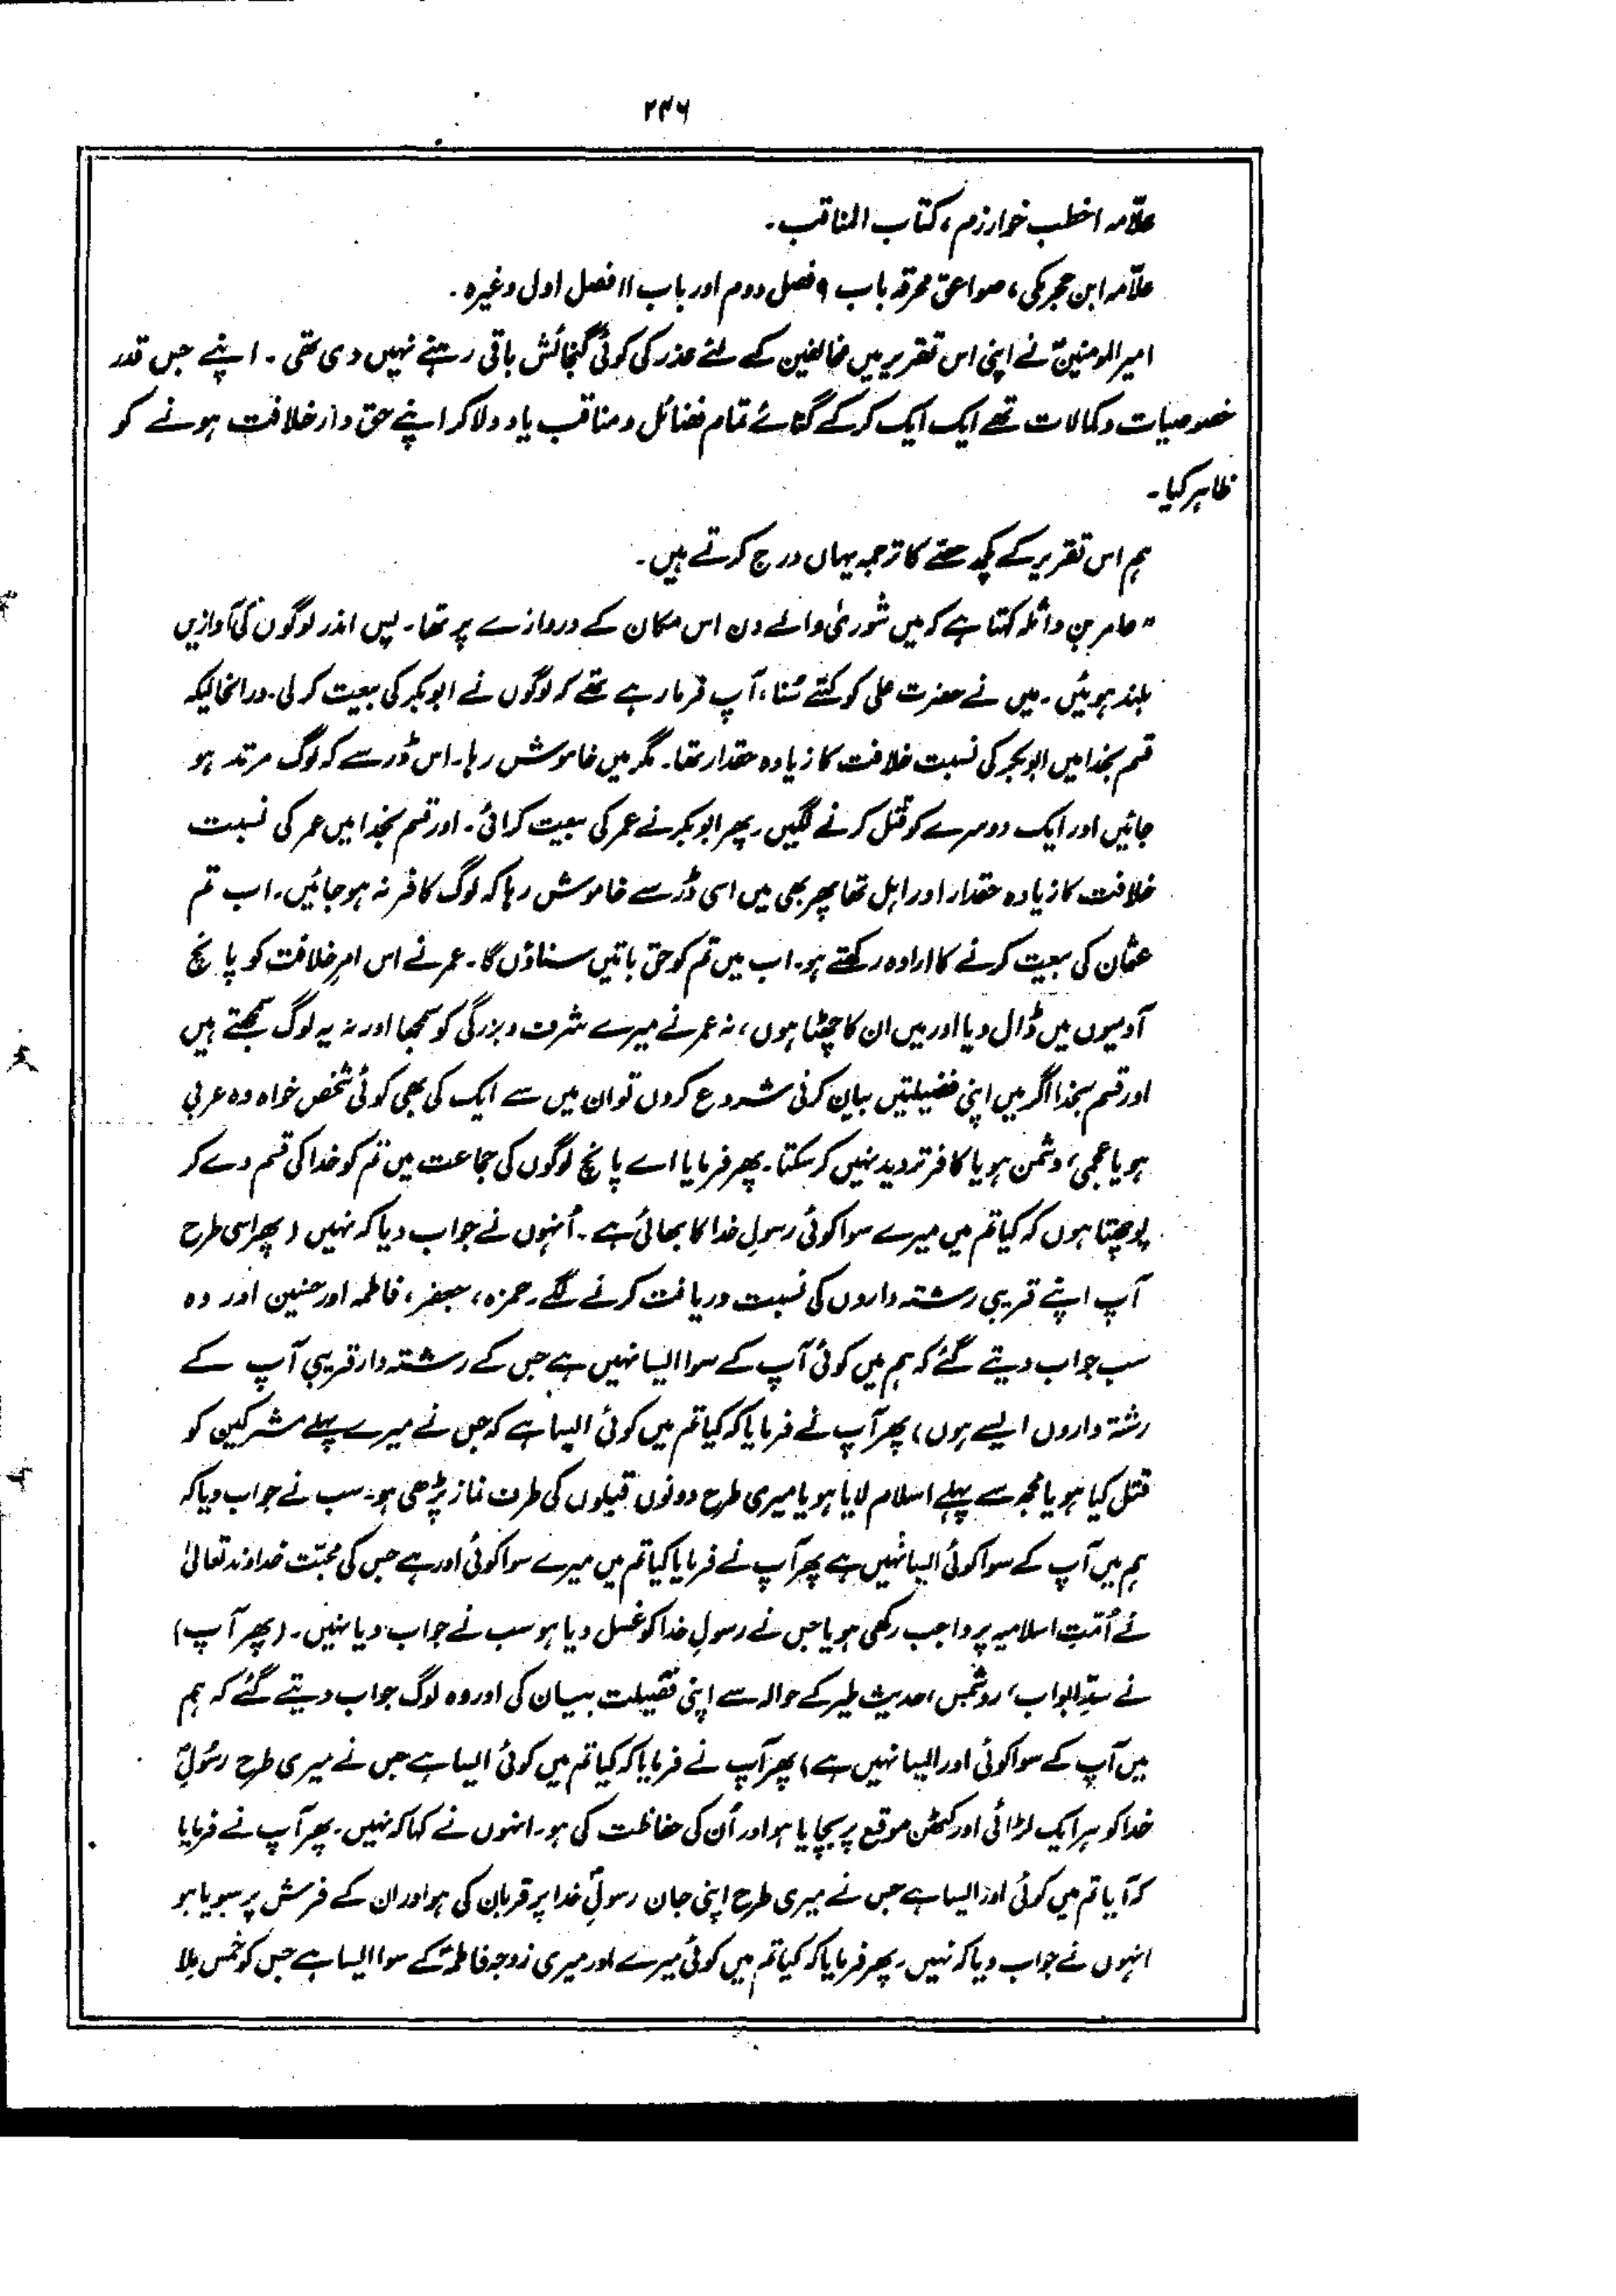 ۲۴۶
علّامہ اخطب خوارزم، کتاب المناقب۔
علّامہ ابن حجر مکی، صواعق محرقہ باب ۹ فصل دوم اور باب ۱۱ فصل اول وغیرہ۔
امیر المومنینؑ نے اپنی اس تقریر میں مخالفین کے لئے عذر کی کوئی گنجائش باقی رہنے نہیں دی تھی۔ اپنے جس قدر
خصوصیات و کمالات تھے ایک ایک کر کے گنائے تمام فضائل و مناقب یاد دلا کر اپنے حق دار خلافت ہونے کو
ظاہر کیا۔
ہم اس تقریر کے کچھ حصّے کا ترجمہ یہاں درج کرتے ہیں۔
"عامر بن واثلہ کہتا ہے کہ میں شوریٰ والے دن اس مکان کے دروازے پر تھا۔ پس اندر لوگوں کی آوازیں
بلند ہوئیں۔ میں نے حضرت علی کو کہتے سُنا، آپ فرما رہے تھے کہ لوگوں نے ابوبکر کی بیعت کر لی۔ درانحالیکہ
قسم بخدا میں ابوبکر کی نسبت خلافت کا زیادہ حقدار تھا۔ مگر میں خاموش رہا۔ اس ڈر سے کہ لوگ مرتد ہو
جائیں اور ایک دوسرے کو قتل کرنے لگیں۔ پھر ابوبکر نے عمر کی بیعت کرائی۔ اور قسم بخدا میں عمر کی نسبت
خلافت کا زیادہ حقدار اور اہل تھا پھر بھی میں اسی ڈر سے خاموش رہا کہ لوگ کافر نہ ہو جائیں۔ اب تم
عثمان کی بیعت کرنے کا ارادہ رکھتے ہو۔ اب میں تم کو حق باتیں سناؤں گا۔ عمر نے اس امرِ خلافت کو پانچ
آدمیوں میں ڈال دیا اور میں ان کا چھٹا ہوں، نہ عمر نے میرے شرف و بزرگی کو سمجھا اور نہ یہ لوگ سمجھتے ہیں
اور قسم بخدا اگر میں اپنی فضیلتیں بیان کرنی شروع کروں تو ان میں سے ایک کی بھی کوئی شخص خواہ وہ عربی
ہو یا عجمی، دشمن ہو یا کافر تردید نہیں کر سکتا۔ پھر فرمایا اے پانچ لوگوں کی جماعت میں تم کو خدا کی قسم دے کر
پوچھتا ہوں کہ کیا تم میں میرے سوا کوئی رسولِ خدا کا بھائی ہے۔ اُنہوں نے جواب دیا کہ نہیں (پھر اسی طرح
آپ اپنے قریبی رشتہ داروں کی نسبت دریافت کرنے لگے۔ حمزہ، جعفر، فاطمہ اور حسنین اور وہ
سب جواب دیتے گئے کہ ہم میں کوئی آپ کے سوا ایسا نہیں ہے جس کے رشتہ دار قریبی آپ کے
رشتہ داروں ایسے ہوں) پھر آپ نے فرمایا کہ کیا تم میں کوئی ایسا ہے کہ جس نے میرے پہلے مشرکین کو
قتل کیا ہو یا مجھ سے پہلے اسلام لایا ہو یا میری طرح دونوں قبلوں کی طرف نماز پڑھی ہو۔ سب نے جواب دیا کہ
ہم میں آپ کے سوا کوئی ایسا نہیں ہے پھر آپ نے فرمایا کیا تم میں میرے سوا کوئی اور ہے جس کی محبّت خداوند تعالیٰ
نے اُمّتِ اسلامیہ پر واجب رکھی ہو یا جس نے رسولِ خدا کو غسل دیا ہو سب نے جواب دیا نہیں۔ (پھر آپ)
نے سدّ ابواب، ردّ شمس، حدیث طیر کے حوالہ سے اپنی فضیلت بیان کی اور وہ لوگ جواب دیتے گئے کہ ہم
میں آپ کے سوا کوئی اور ایسا نہیں ہے) پھر آپ نے فرمایا کہ کیا تم میں کوئی ایسا ہے جس نے میری طرح رسُولِؐ
خدا کو ہر ایک لڑائی اور کٹھن موقع پر بچایا ہو اور اُن کی حفاظت کی ہو۔ انہوں نے کہا کہ نہیں۔ پھر آپ نے فرمایا
کہ آیا تم میں کوئی اور ایسا ہے جس نے میری طرح اپنی جان رسولِؐ خدا پر قربان کی ہو اور ان کے فرش پر سویا ہو
انہوں نے جواب دیا کہ نہیں۔ پھر فرمایا کہ کیا تم میں کوئی میرے اور میری زوجہ فاطمہؑ کے سوا ایسا ہے جس کو خمس ملا